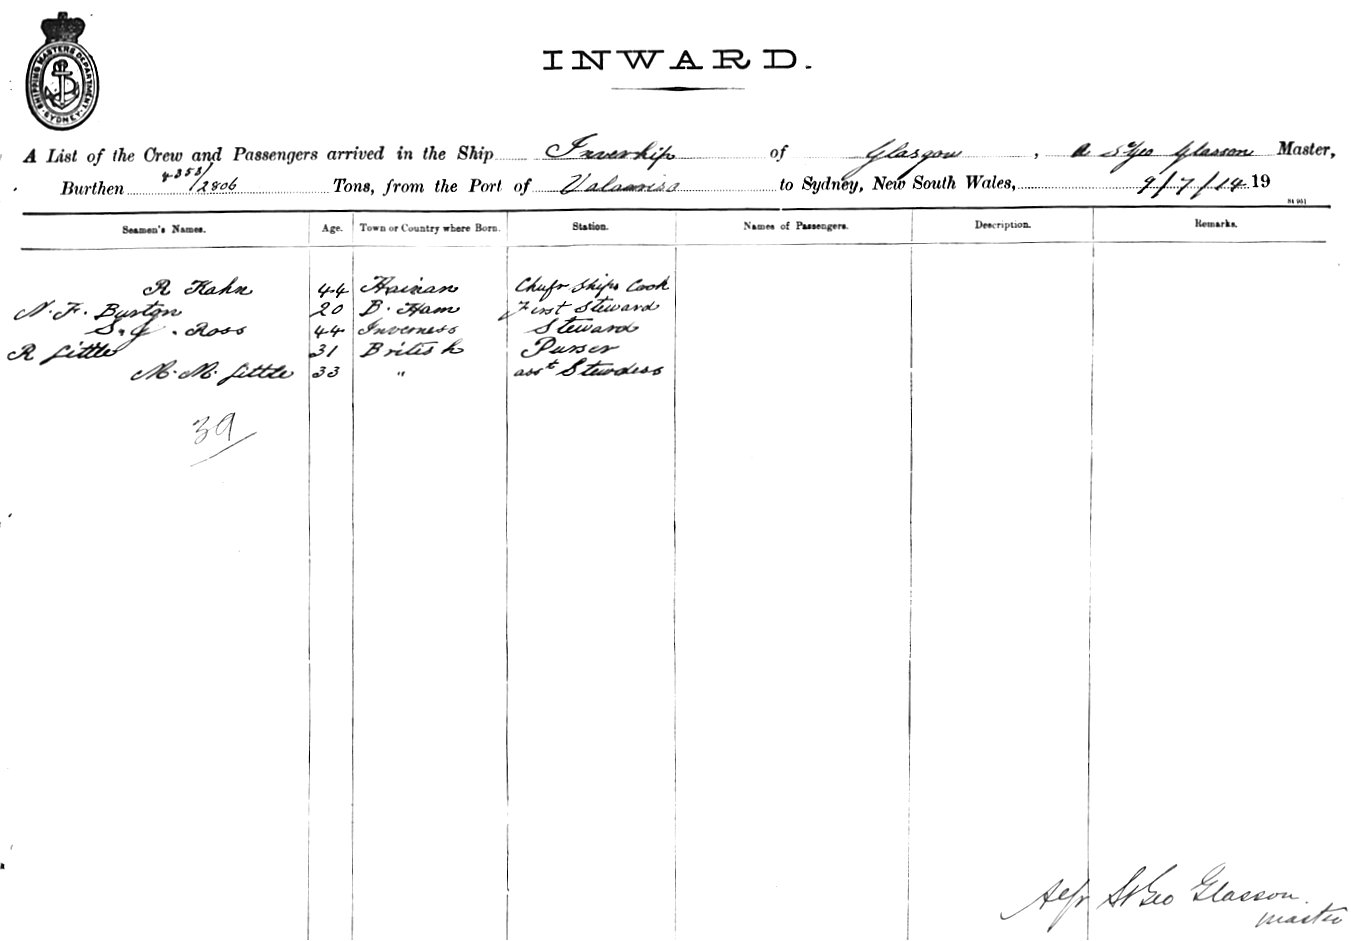 SHIPPING MASTERS DEPARTMENT
SYDNEY
INWARD.
A List of the Crew and Passengers arrived in the Ship Inverskip of Glasgow, A St Geo Glasson Master,
Burthen 4353/2806 Tons, from the Port of to Sydney, New South Wales, 9/7/14 19
Seamen's Names. Age. Town or Country where Born. Station. Names of Passengers. Description. Remarks.
R Kahn 44 Hainan Ships Cook
N. F. Burton 20 B. Ham First Steward
S. J. Ross 44 Inverness Steward
R Little 31 British Purser
M. M. Little 33 " asst Stewdess
39
Alfr St Geo Glasson.
master